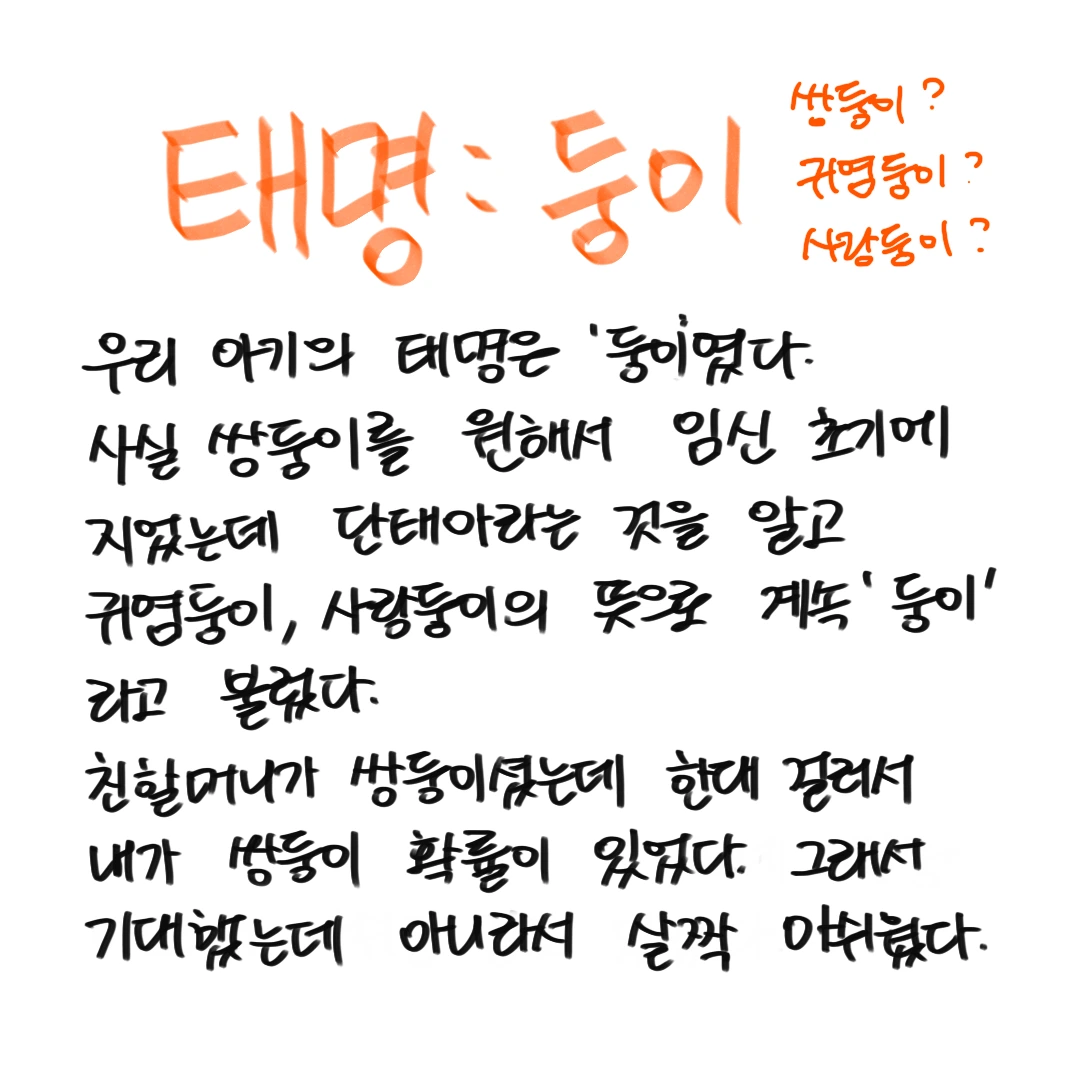 태명: 둥이
쌍둥이?
귀염둥이?
사랑둥이?
우리 아기의 태명은 '둥이'였다.
사실 쌍둥이를 원해서 임신 초기에
지었는데 단태아라는 것을 알고
귀염둥이, 사랑둥이의 뜻으로 계속 '둥이'
라고 불렀다.
친할머니가 쌍둥이셨는데 한대 걸러서
내가 쌍둥이 확률이 있었다. 그래서
기대했는데 아니라서 살짝 아쉬웠다.